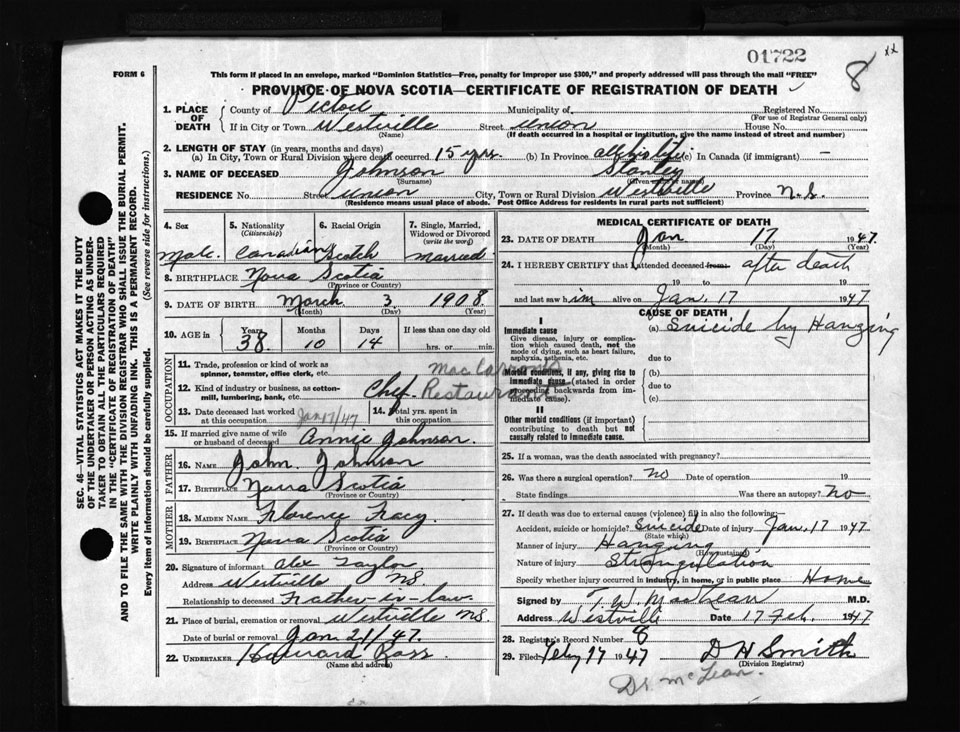 01722
xx
8
FORM 6
This form if placed in an envelope, marked "Dominion Statistics—Free, penalty for improper use $300," and properly addressed will pass through the mail "FREE"
PROVINCE OF NOVA SCOTIA—CERTIFICATE OF REGISTRATION OF DEATH
1. PLACE OF DEATH County of Pictou Municipality of Registered No.
(For use of Registrar General only)
If in City or Town Westville Street Union House No.
(Name) (If death occurred in a hospital or institution, give the name instead of street and number)
2. LENGTH OF STAY (in years, months and days)
(a) In City, Town or Rural Division where death occurred 15 yrs. (b) In Province all his life (c) In Canada (if immigrant) —
3. NAME OF DECEASED Johnson Stanley
(Surname) (Given or names)
RESIDENCE No. Street Union City, Town or Rural Division Westville Province N.S.
(Residence means usual place of abode. Post Office Address for residents in rural parts not sufficient)
4. Sex 5. Nationality (Citizenship) 6. Racial Origin 7. Single, Married, Widowed or Divorced (write the word)
Male. Canadian Scotch Married
8. BIRTHPLACE Nova Scotia
(Province or Country)
9. DATE OF BIRTH March 3 1908
(Month) (Day) (Year)
10. AGE in Years Months Days If less than one day old
38 10 14 hrs. or min.
OCCUPATION
11. Trade, profession or kind of work as spinner, teamster, office clerk, etc.
12. Kind of industry or business, as cotton-mill, lumbering, bank, etc. Chef Restaurant
13. Date deceased last worked at this occupation Jan 17/47 14. Total yrs. spent in this occupation
15. If married give name of wife or husband of deceased Annie Johnson.
FATHER
16. NAME John Johnson
17. BIRTHPLACE Nova Scotia
(Province or Country)
MOTHER
18. MAIDEN NAME Florence Tracy
19. BIRTHPLACE Nova Scotia
(Province or Country)
20. Signature of informant Alex Taylor
Address Westville NS.
Relationship to deceased Father-in-law
21. Place of burial, cremation or removal Westville NS.
Date of burial or removal Jan 21/47.
22. UNDERTAKER Howard Ross
(Name and address)
MEDICAL CERTIFICATE OF DEATH
23. DATE OF DEATH Jan 17 1947.
(Month) (Day) (Year)
24. I HEREBY CERTIFY that I attended deceased from: after death
19 to 19
and last saw him alive on Jan. 17 1947
CAUSE OF DEATH
I
Immediate cause (a) Suicide by Hanging
Give disease, injury or complication which caused death, not the mode of dying, such as heart failure, asphyxia, asthenia, etc.
due to
Morbid conditions, if any, giving rise to immediate cause (stated in order proceeding backwards from immediate cause). (b)
due to
(c)
II
Other morbid conditions (if important) contributing to death but not causally related to immediate cause.
25. If a woman, was the death associated with pregnancy?
26. Was there a surgical operation? no Date of operation 19
State findings Was there an autopsy? no
27. If death was due to external causes (violence) fill in also the following:—
Accident, suicide or homicide? Suicide Date of injury Jan. 17 1947
(State which)
Manner of injury Hanging
(How sustained)
Nature of injury Strangulation
Specify whether injury occurred in industry, in home, or in public place Home
Signed by T. W. MacLean M.D.
Address Westville Date 17 Feb. 1947
28. Registrar's Record Number 8
29. Filed Feby 17 1947 D H Smith
(Division Registrar)
Dr. McLean.
SEC. 46—VITAL STATISTICS ACT MAKES IT THE DUTY
OF THE UNDERTAKER OR PERSON ACTING AS UNDER-
TAKER TO OBTAIN ALL THE PARTICULARS REQUIRED
IN THE "CERTIFICATE OF REGISTRATION OF DEATH"
AND TO FILE THE SAME WITH THE DIVISION REGISTRAR WHO SHALL ISSUE THE BURIAL PERMIT.
WRITE PLAINLY WITH UNFADING INK. THIS IS A PERMANENT RECORD.
Every item of information should be carefully supplied. (See reverse side for instructions.)